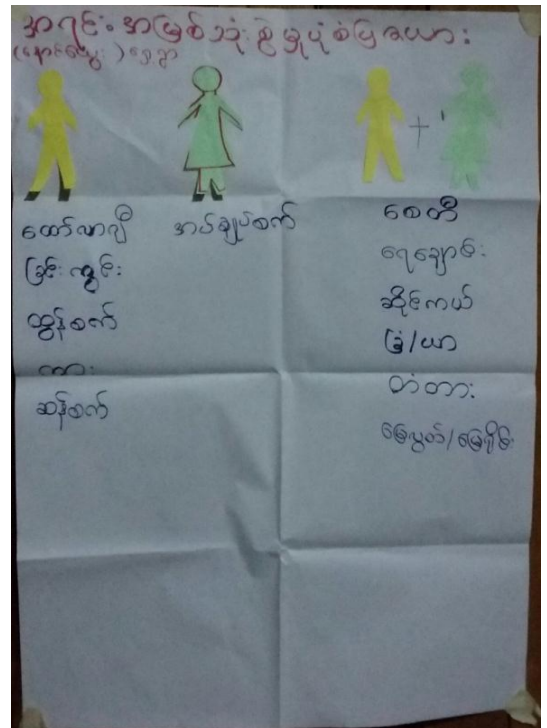 အရင်းအမြစ်သုံးစွဲမှုပုံစံပြဇယား
ရွာ
+
ထော်လာဂျီ
ခြင်းကွင်း
ထွန်စက်
ကား
ဆန်စက်
အပ်ချုပ်စက်
စေတီ
ရေချောင်း
ဆိုင်ကယ်
ခြံ/ယာ
တံတား